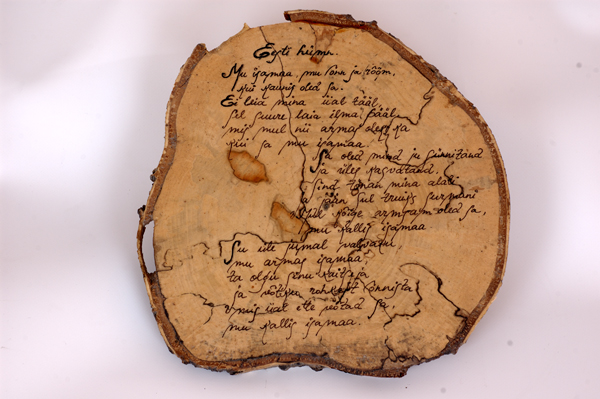 Eesti hümn.
Mu isamaa, mu õnn ja rõõm,
kui kaunis oled sa.
Ei leia mina iial tääl,
sel suure laia ilma pääl
mis mul nii armas oleks ka
kui sa mu isamaa
Sa oled mind ju sünnitand
ja üles kasvatand.
Sind tänan mina alati
ja jään sul truuiks surmani
mul kõige armsam oled sa,
mu kallis isamaa
Su üle jumal valvaku,
mu armas isamaa,
ta olgu sinu kaitseja
ja võtku rohkest õnnista
mis iial ette võtad sa
mu kallis isamaa.